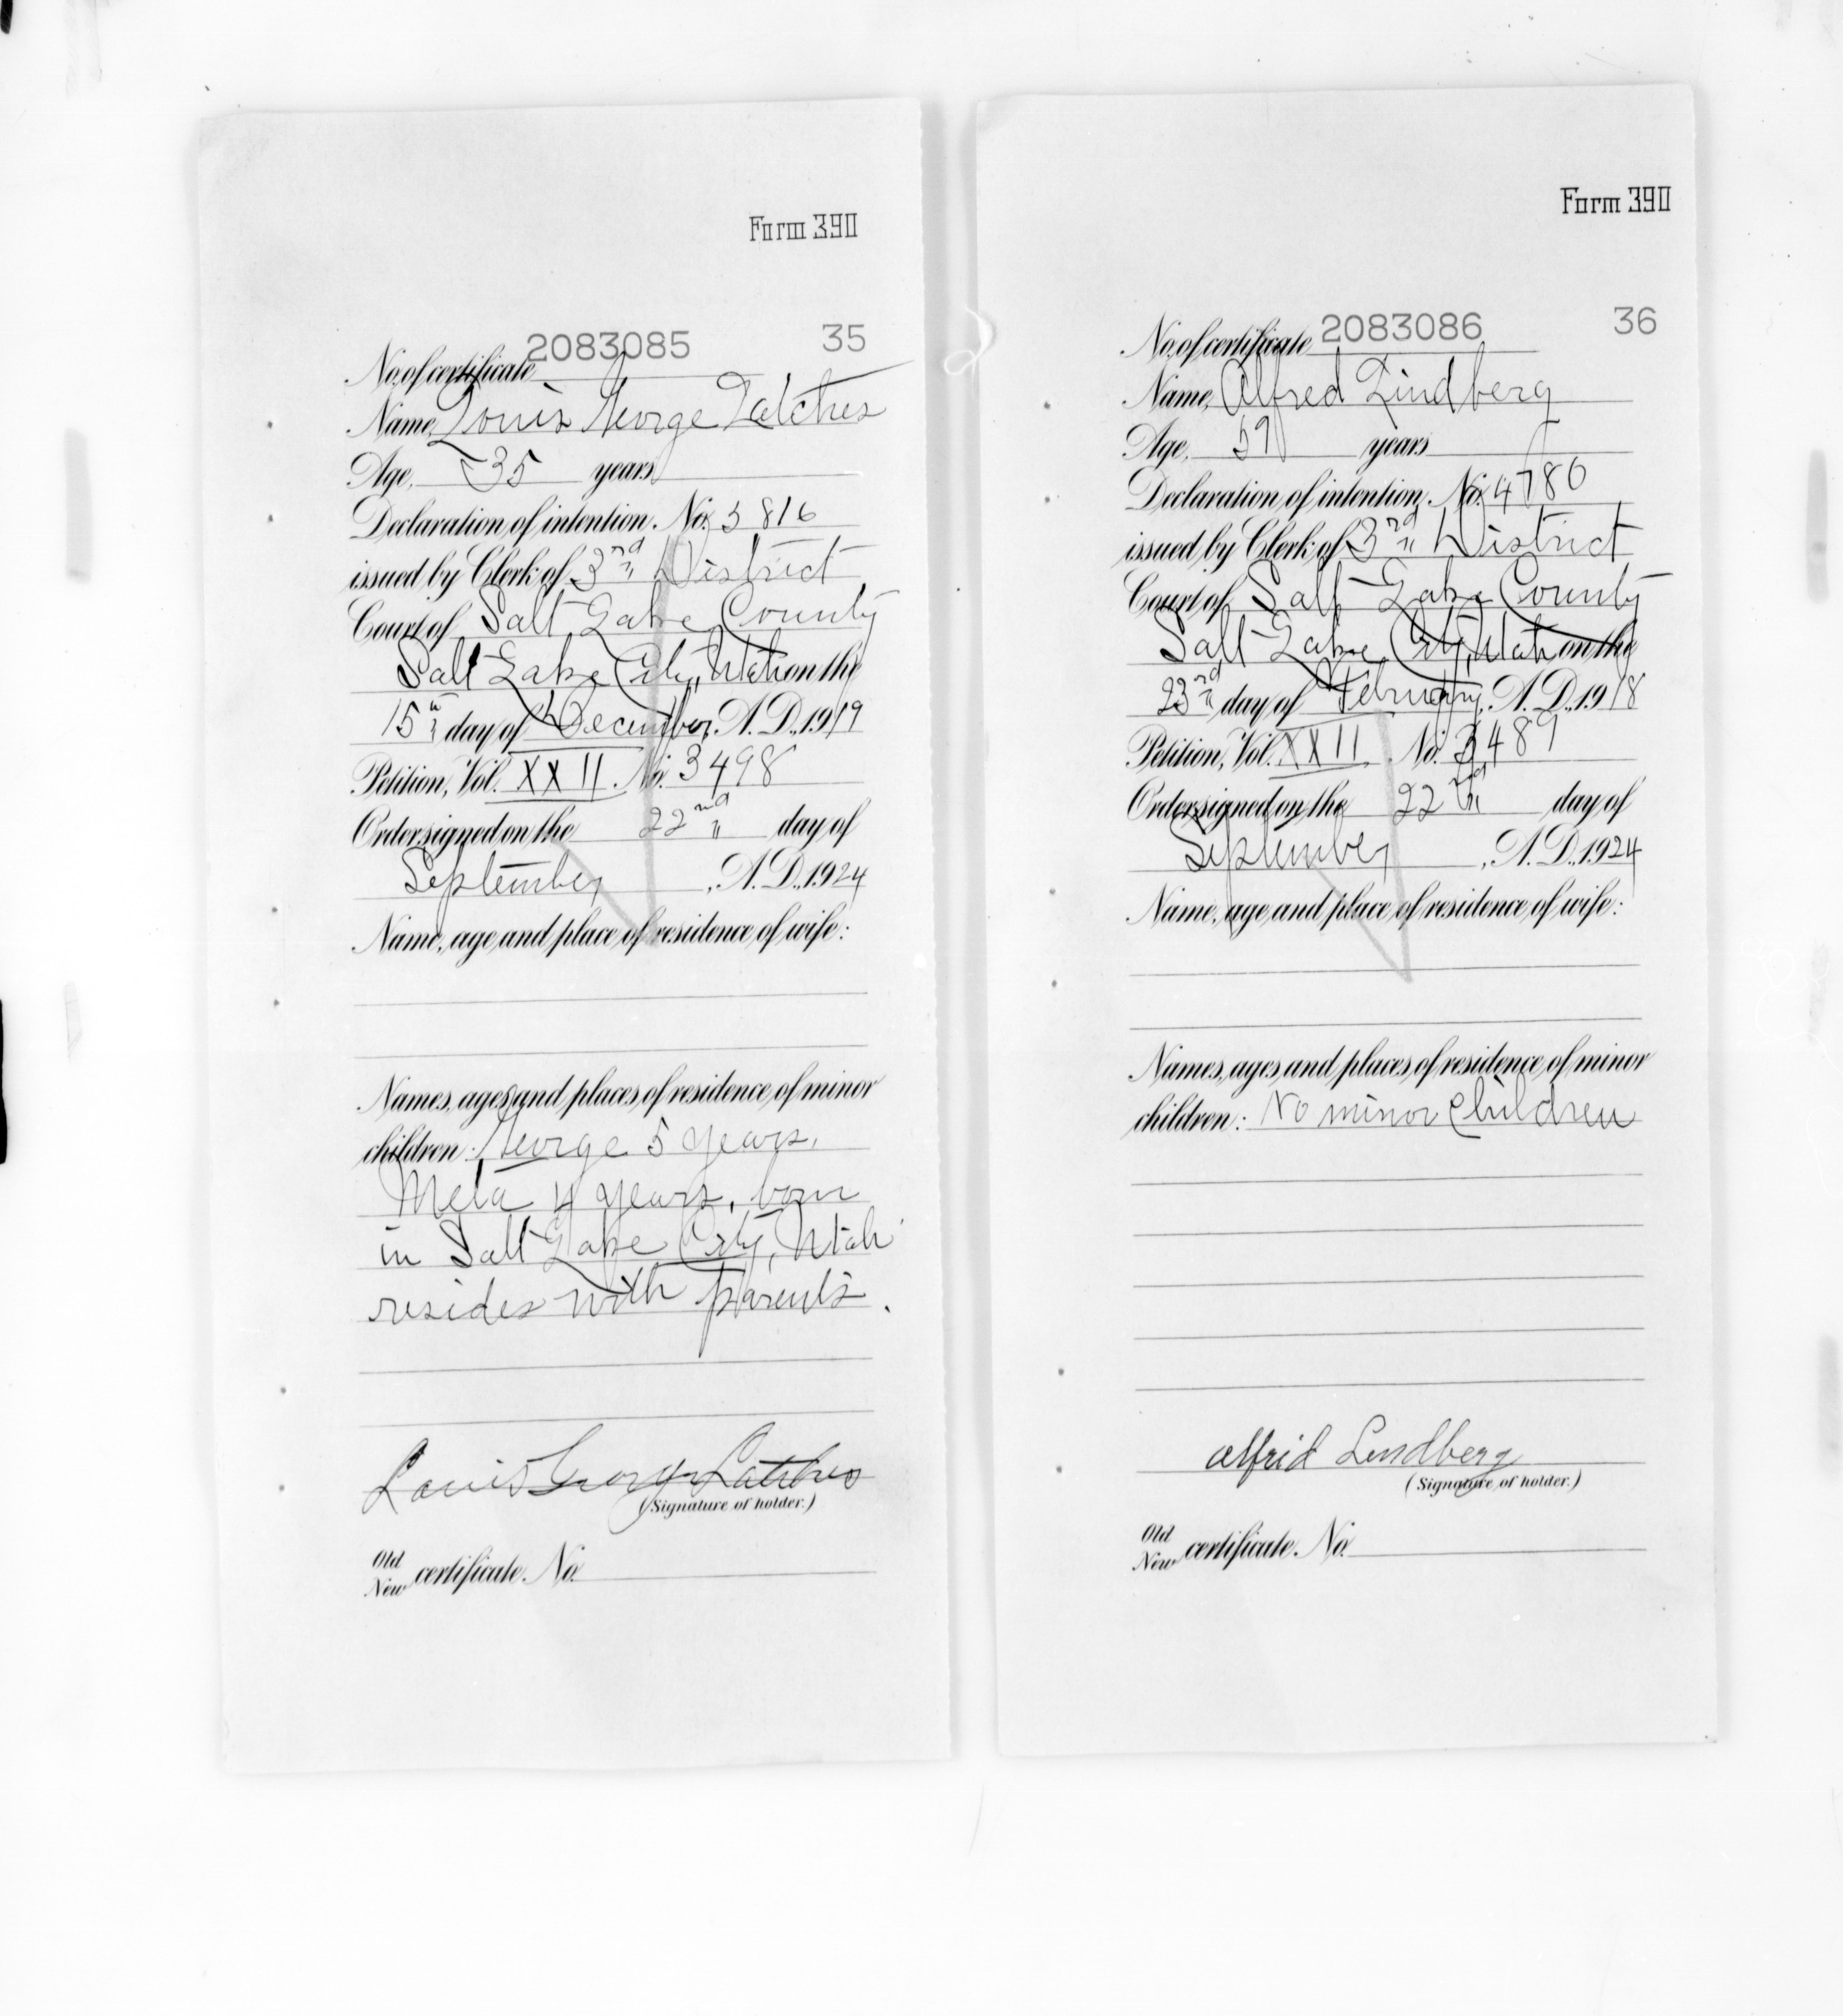 Form 390
2083085 35
No. of certificate
Name, Louis George Latches
Age, 35 years
Declaration of intention, No. 5816
issued by Clerk of 3rd District
Court of Salt Lake County
Salt Lake City, Utah on the
15th day of December, A.D., 1919
Petition, Vol. XXII. No. 3498
Order signed on the 22nd day of
September, A.D., 1924
Name, age, and place of residence of wife:
Names, ages and places of residence of minor
children: George 5 years,
Meta 4 years, born
in Salt Lake City, Utah
resides with parents.
Louis George Latches
(Signature of holder.)
Old
New certificate No.
Form 390
2083086 36
No. of certificate
Name, Alfred Lindberg
Age, years
Declaration of intention, No. 4780
issued by Clerk of 3rd District
Court of Salt Lake County
Salt Lake City, Utah on the
23rd day of February, A.D., 1918
Petition, Vol. XXII. No. 3489
Order signed on the 22nd day of
September, A.D., 1924
Name, age, and place of residence of wife:
Names, ages, and places of residence of minor
children: No minor children
Alfrid Lindberg
(Signature of holder.)
Old
New certificate No.